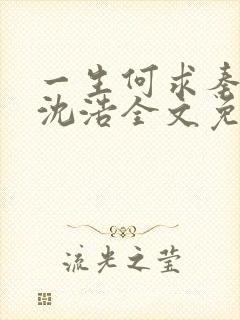 一生何求秦
沈浩全文免
流光之莹